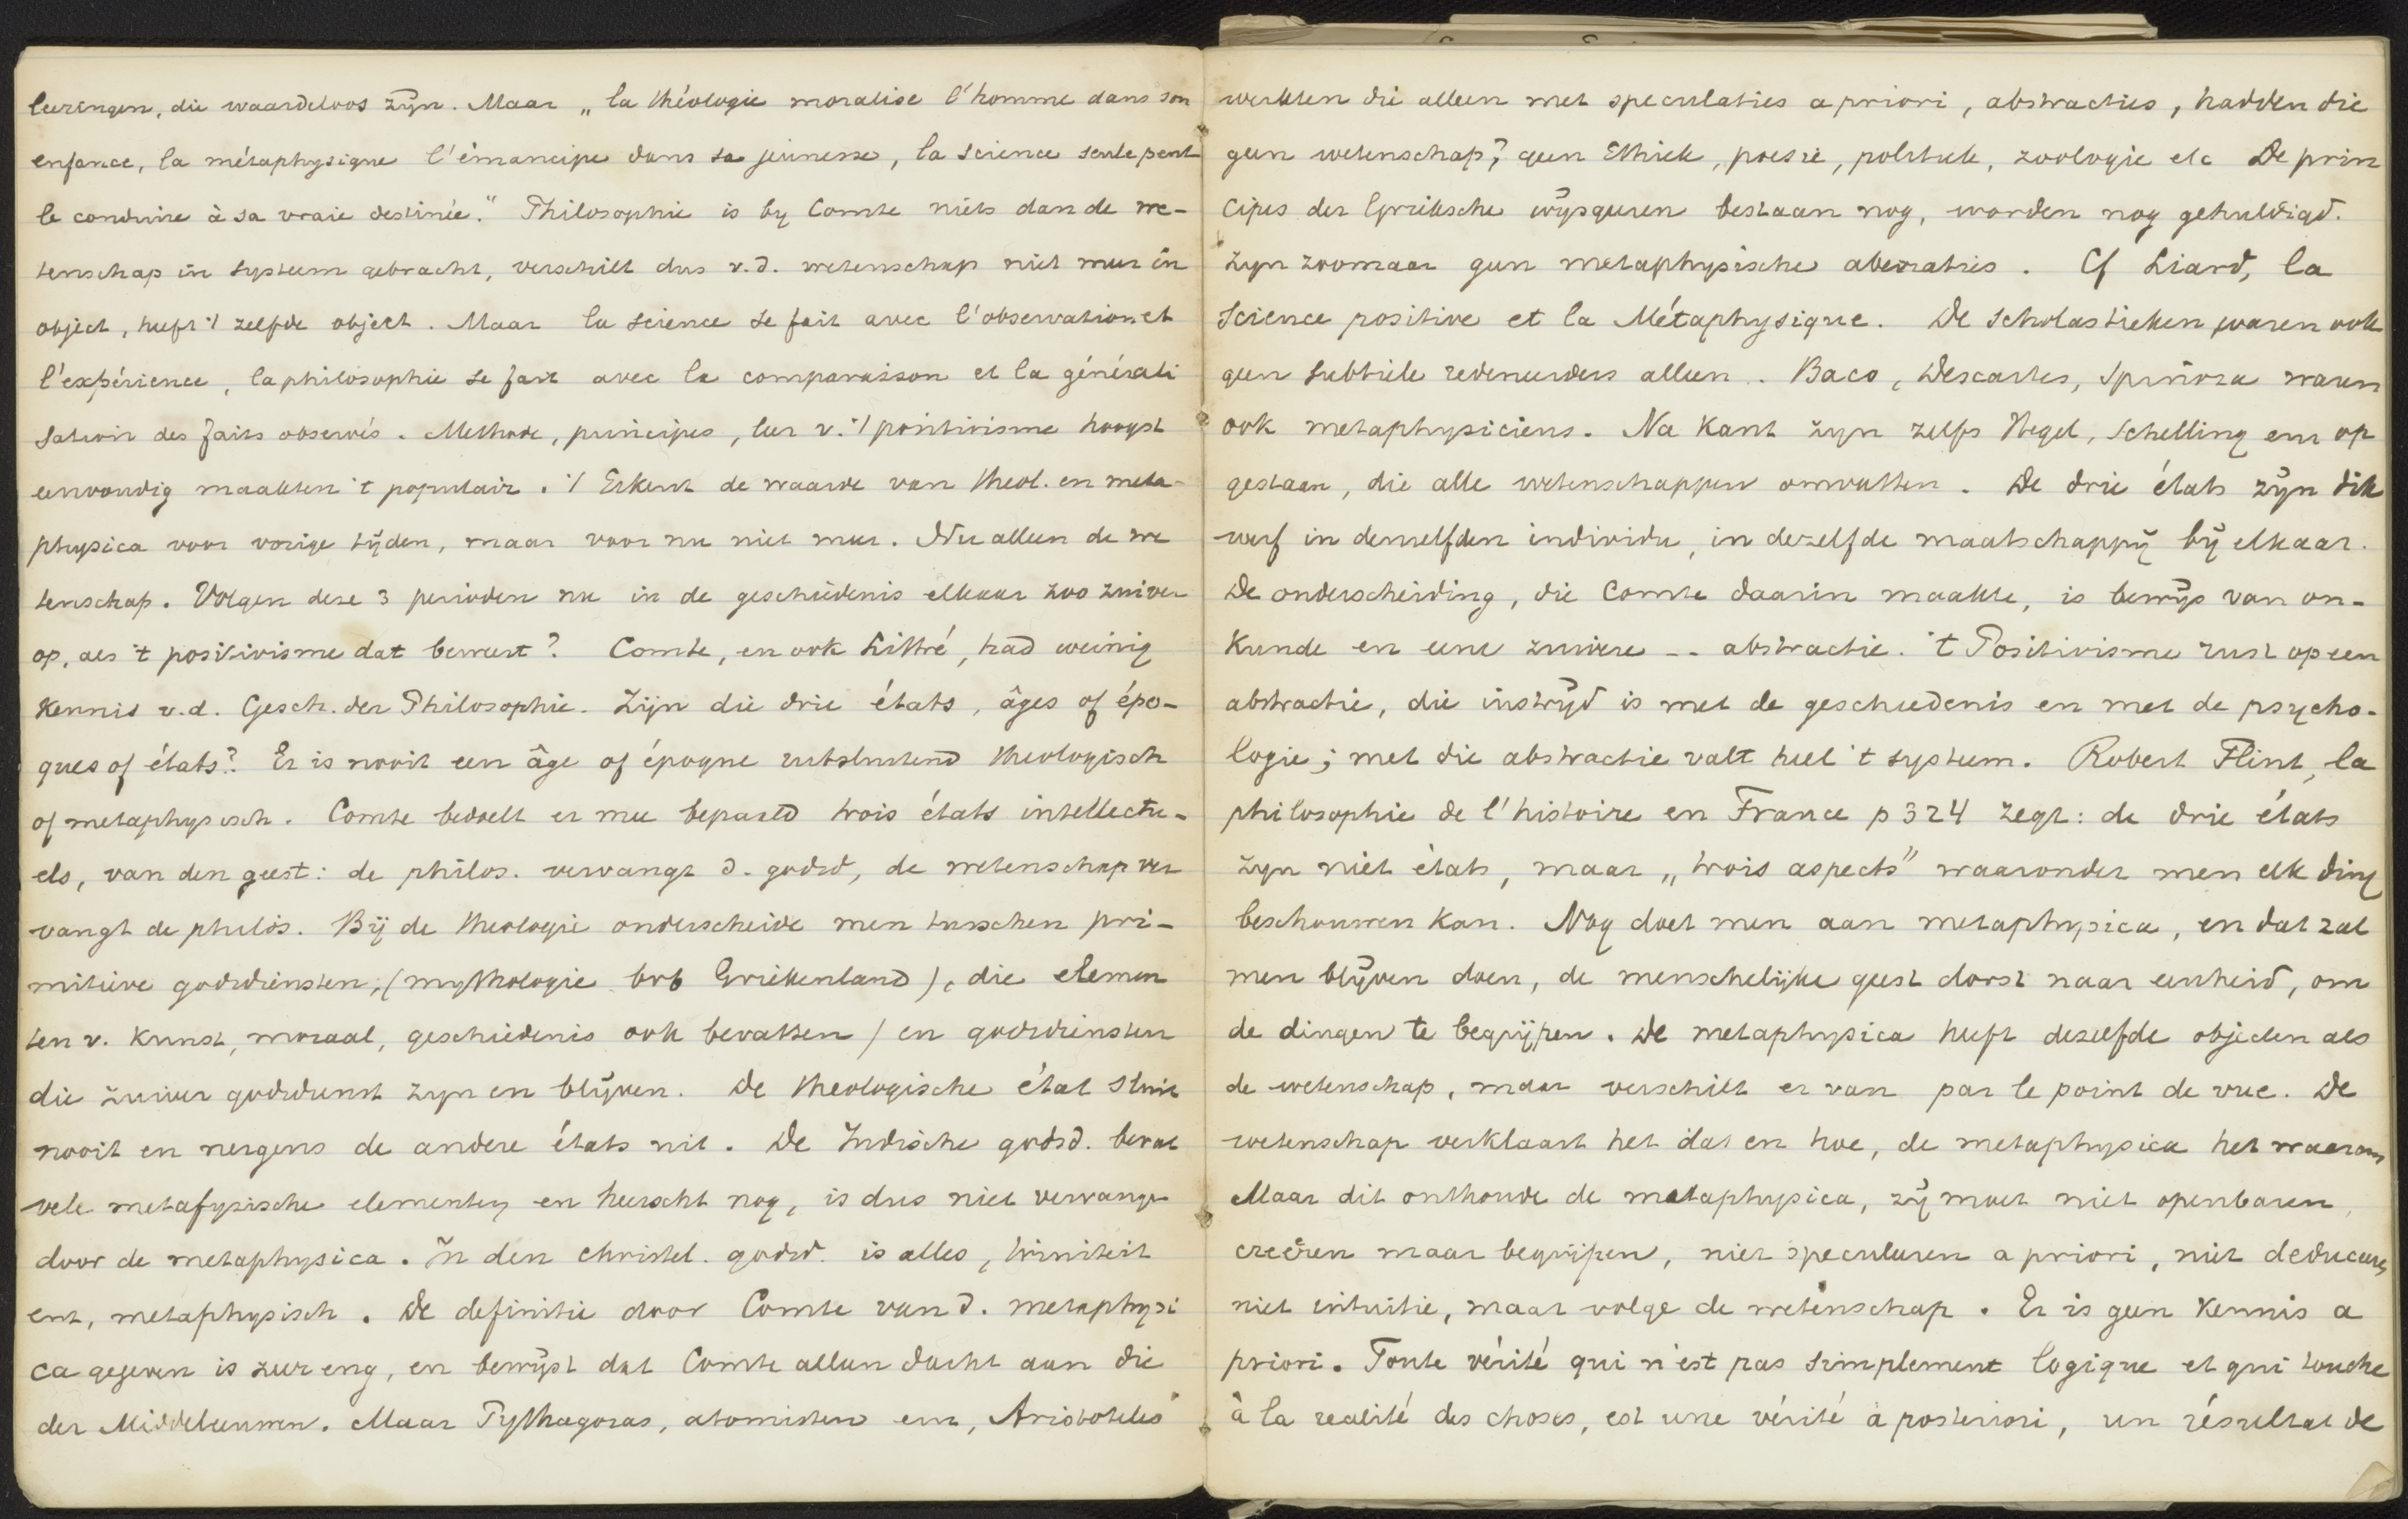 leeringen, die waardeloos zijn. Maar „la théologie moralise l'homme dans son
enfance, la métaphysique l'émancipe dans sa jeunesse, la science seule peut
le conduire à sa vraie destinée." Philosophie is by Comte niets dan de we-
tenschap in systeem gebracht, verschilt dus v.d. wetenschap niet meer in
object, heeft 't zelfde object. Maar la science se fait avec l'observation et
l'expérience, la philosophie se fait avec la comparaison et la générali
sation des faits observés. Methode, principes, leer v. 't positivisme hoogst
eenvoudig maakten 't populair. 't Erkent de waarde van theol. en meta-
physica voor vorige tijden, maar voor nu niet meer. Nu alleen de we
tenschap. Volgen deze 3 perioden nu in de geschiedenis elkaar zoo zuiver
op, als 't positivisme dat beweert? Comte, en ook Littré, had weinig
kennis v.d. Gesch. der Philosophie. Zijn die drie états, âges of épo-
ques of états? Er is nooit een âge of époque uitsluitend theologisch
of metaphysisch. Comte bedoelt er mee bepaald trois états intellectu-
els, van den geest: de philos. vervangt d. godsd, de wetenschap ver
vangt de philos. Bij de theologie onderscheide men tusschen pri-
mitieve godsdiensten, (mythologie bvb Griekenland), die elemen
ten v. kunst, moraal, geschiedenis ook bevatten) en godsdiensten
die zuiver godsdienst zijn en blijven. De theologische état sluit
nooit en nergens de andere états uit. De Indische godsd. bevat
vele metafysische elementen en heerscht nog, is dus niet vervangen
door de metaphysica. In den christel. godsd. is alles, triniteit
enz, metaphysisch. De definitie door Comte van d. metaphysi
ca gegeven is zeer eng, en bewijst dat Comte alleen dacht aan die
der Middeleeuwen. Maar Pythagoras, atomisten enz, Aristoteles
werkten die alleen met speculaties a priori, abstracties, hadden die
geen wetenschap? geen Ethiek, poesie, politiek, zoologie etc De prin
cipes der Grieksche wijsgeeren bestaan nog, worden nog gehuldigd.
zijn zoomaar geen metaphysische aberraties. Cf Liard, la
Science positive et la Métaphysique. De scholastieken waren ook
geen subtiele redeneerders alleen. Baco, Descartes, Spinoza waren
ook metaphysiciens. Na Kant zijn zelfs Hegel, Schelling enz op
gestaan, die alle wetenschappen omvatten. De drie états zijn dik
werf in denzelfden individu, in dezelfde maatschappij bij elkaar.
De onderscheiding, die Comte daarin maakte, is bewijs van on-
kunde en eene zuivere -- abstractie. 't Positivisme rust op een
abstractie, die instrijd is met de geschiedenis en met de psycho-
logie; met die abstractie valt heel 't systeem. Robert Flint, la
philosophie de l'histoire en France p 324 zegt: de drie états
zijn niet états, maar „trois aspects" waaronder men elk ding
beschouwen kan. Nog doet men aan metaphysica, en dat zal
men blijven doen, de menschelijke geest dorst naar eenheid, om
de dingen te begrijpen. De metaphysica heeft dezelfde objecten als
de wetenschap, maar verschilt er van par le point de vue. De
wetenschap verklaart het dat en hoe, de metaphysica het waarom
Maar dit onthoude de metaphysica, zij moet niet openbaren,
creëren maar begrijpen, niet speculeren a priori, niet deduceren,
niet intuitie, maar volge de wetenschap. Er is geen kennis a
priori. Toute vérité qui n'est pas simplement logique et qui touche
à la realité des choses, est une vérité à posteriori, un résultat de